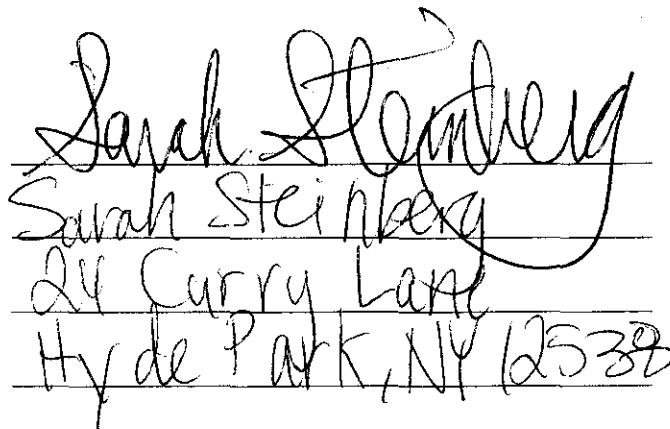 Sarah Steinberg
Sarah Steinberg
24 Curry Lane
Hyde Park, NY 12538